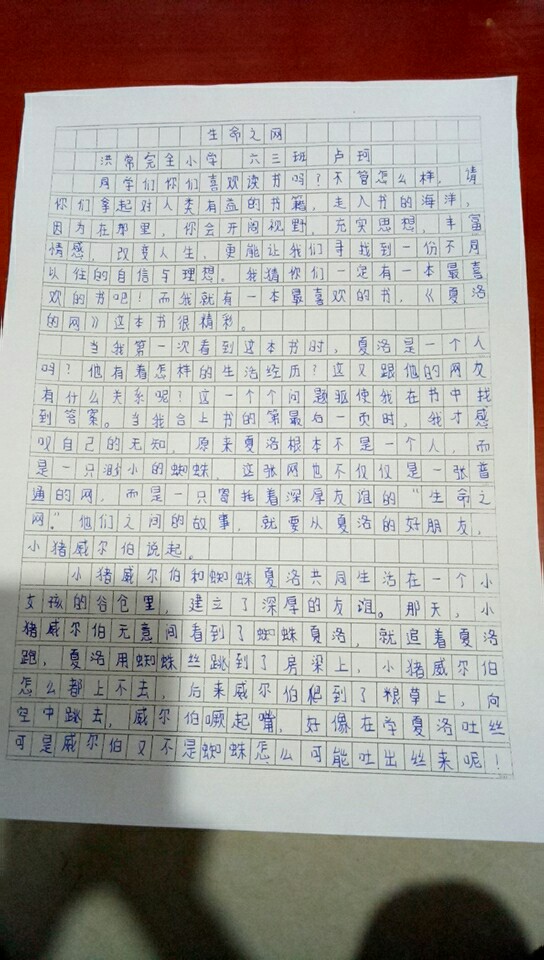 生命之网
洪常完全小学 六三班 卢珂
同学们你们喜欢读书吗？不管怎么样，请
你们拿起对人类有益的书籍，走入书的海洋，
因为在那里，你会开阔视野，充实思想，丰富
情感，改变人生，更能让我们寻找到一份不同
以往的自信与理想。我猜你们一定有一本最喜
欢的书吧！而我就有一本最喜欢的书，《夏洛
的网》这本书很精彩。
当我第一次看到这本书时，夏洛是一个人
吗？他有着怎样的生活经历？这又跟他的网友
有什么关系呢？这一个个问题驱使我在书中找
到答案。当我合上书的第最后一页时，我才感
叹自己的无知，原来夏洛根本不是一个人，而
是一只渺小的蜘蛛，这张网也不仅仅是一张普
通的网，而是一只寄托着深厚友谊的“生命之
网。”他们之间的故事，就要从夏洛的好朋友，
小猪威尔伯说起。
小猪威尔伯和蜘蛛夏洛共同生活在一个小
女孩的谷仓里，建立了深厚的友谊。那天，小
猪威尔伯无意间看到了蜘蛛夏洛，就追着夏洛
跑，夏洛用蜘蛛丝跳到了房梁上，小猪威尔伯
怎么都上不去，后来威尔伯爬到了粮草上，向
空中跳去，威尔伯噘起嘴，好像在学夏洛吐丝
可是威尔伯又不是蜘蛛怎么可能吐出丝来呢！